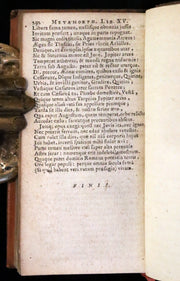 392 METAMORPH. LIB. XV.
Libera fama tamen, nullisque obnoxia jussis,
Invitum præfert; unaque in parte repugnat.
Sic magni cedit titulis Agamemnonis Atreus:
Ægea sic Theseus, sic Pelea vincit Achilles.
Denique, ut exemplis ipsos æquantibus utar,
Sic & Saturnus minor est Jove. Jupiter arces
Temperat æthereas, & mundi regna triformis:
Terra sub Augusto. pater est & rector uterque.
Di, precor, Æneæ comites, quibus ensis & ignis
Cesserunt, Dique Indigetes, genitorque Quirine
Urbis, & invicti genitor Gradive Quirini,
Vestaque Cæsareos inter sacrata Penates;
Et cum Cæsarea tu, Phœbe domestice, Vesta,
Quique tenes altus Tarpeias Jupiter arces
Tarda sit illa dies, & nostro serior ævo;
Qua caput Augustum, quem temperat, orbe relicto
Accedat cælo:
Jamque opus exegi: quod nec Jovis ira, nec ignes,
Nec poterit ferrum, nec edax abolere vetustas.
Cum volet illa dies, quæ nil nisi corporis hujus
Jus habet, incerti spatium mihi finiat ævi:
Parte tamen meliore mei super alta perennis
Astra ferar: nomenque erit indelebile nostrum.
Quaque patet domitis Romana potentia terris
Ore legar populi: perque omnia sæcula fama
(Si quid habent veri vatum præsagia) vivam.
FINIS.